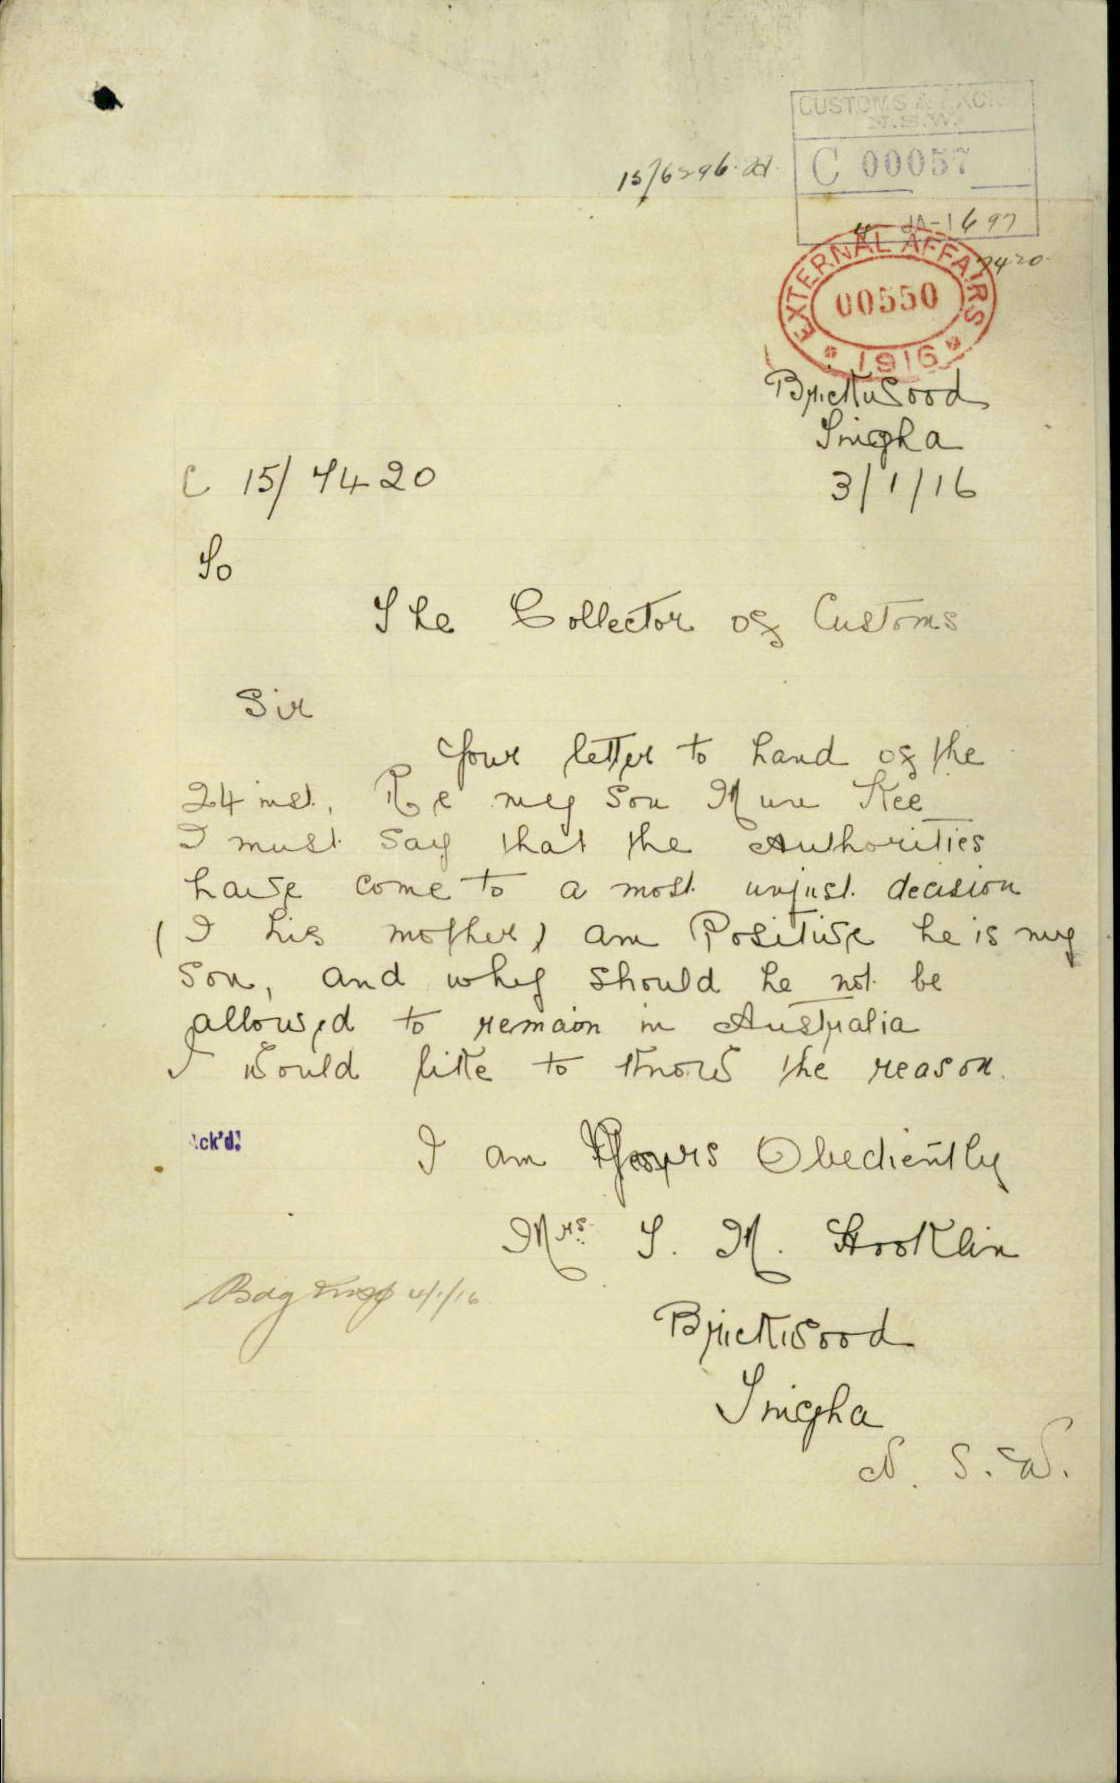 CUSTOMS & EXCISE
N.S.W.
C 00057
15/6296
4 JA-16 97
7420
EXTERNAL AFFAIRS
00550
1916
Brickwood
Tingha
3/1/16
C 15/7420
To
The Collector of Customs
Sir
Your letter to hand of the
24 inst. Re my Son Mun Kee
I must say that the Authorities
have come to a most unjust decision
(I his mother) am Positive he is my
son, and why should he not be
allowed to remain in Australia
I would like to know the reason.
Ack'd.
I am Yours Obediently
Mrs. T. M. Hooklin
4/1/16
Brickwood
Tingha
N. S. W.